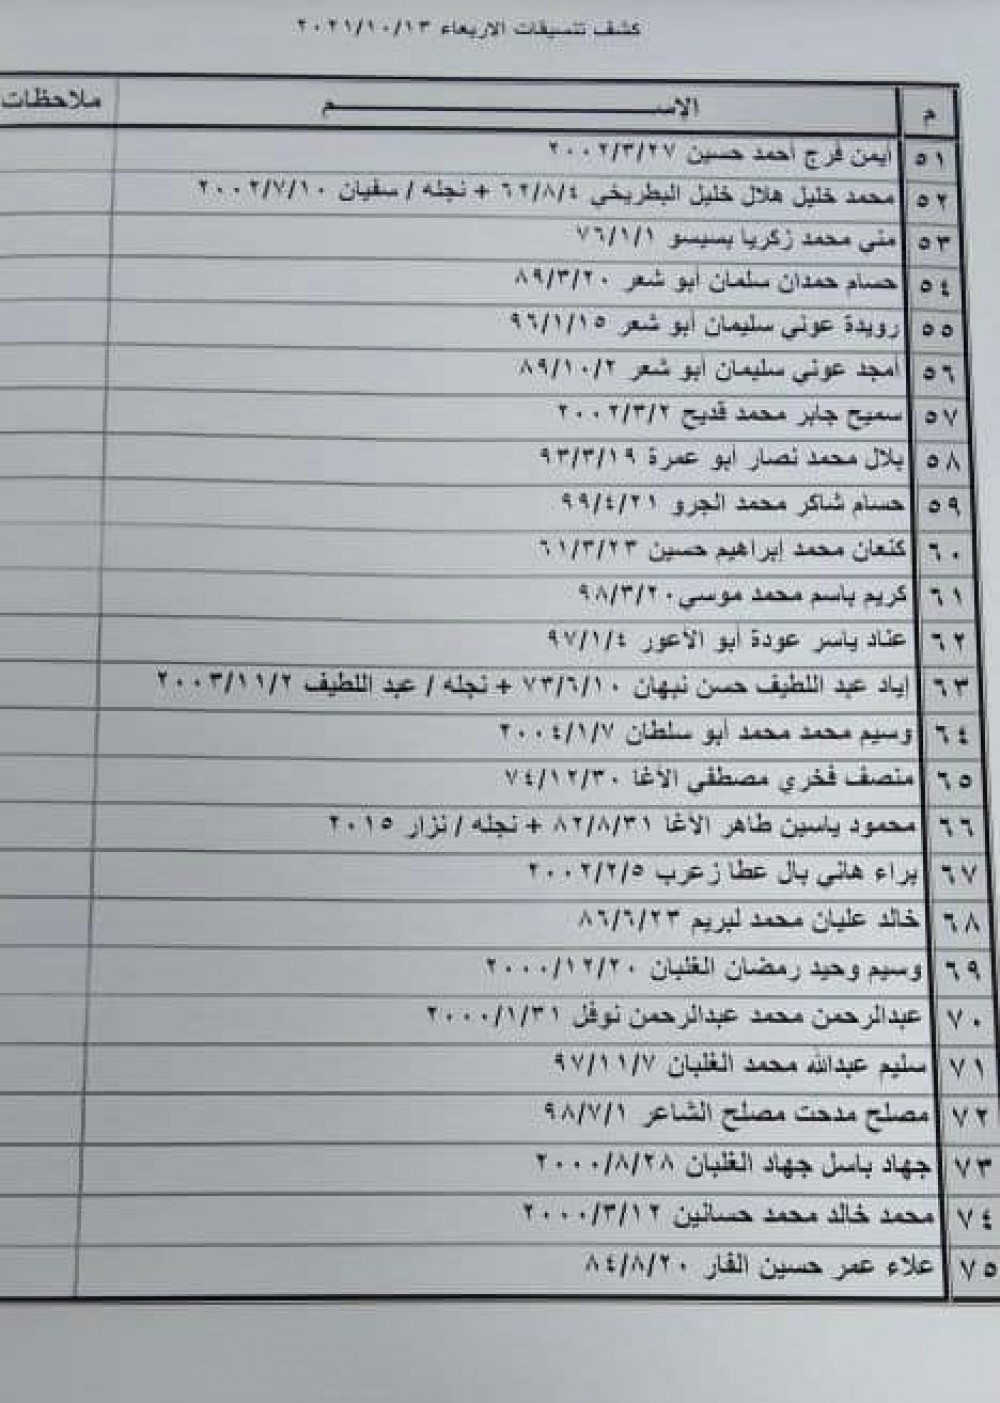 كشف تنسيقات الاربعاء ٢٠٢١/١٠/١٣
م الاســـــــــــم ملاحظات
٥١ أيمن فرج أحمد حسين ٢٠٠٢/٣/٢٧
٥٢ محمد خليل هلال خليل البطريخي ٦٢/٨/٤ + نجله / سفيان ٢٠٠٢/٧/١٠
٥٣ مني محمد زكريا بسيسو ٧٦/١/١
٥٤ حسام حمدان سلمان أبو شعر ٨٩/٣/٢٠
٥٥ رويدة عوني سليمان أبو شعر ٩٦/١/١٥
٥٦ أمجد عوني سليمان أبو شعر ٨٩/١٠/٢
٥٧ سميح جابر محمد قديح ٢٠٠٢/٣/٢
٥٨ بلال محمد نصار أبو عمرة ٩٣/٣/١٩
٥٩ حسام شاكر محمد الجرو ٩٩/٤/٢١
٦٠ كنعان محمد إبراهيم حسين ٦١/٣/٢٣
٦١ كريم باسم محمد موسي ٩٨/٣/٢٠
٦٢ عناد ياسر عودة أبو الأعور ٩٧/١/٤
٦٣ إياد عبد اللطيف حسن نبهان ٧٣/٦/١٠ + نجله / عبد اللطيف ٢٠٠٣/١١/٢
٦٤ وسيم محمد محمد أبو سلطان ٢٠٠٤/١/٧
٦٥ منصف فخري مصطفي الأغا ٧٤/١٢/٣٠
٦٦ محمود ياسين طاهر الأغا ٨٢/٨/٣١ + نجله / نزار ٢٠١٥
٦٧ براء هاني بال عطا زعرب ٢٠٠٢/٢/٥
٦٨ خالد عليان محمد لبريم ٨٦/٦/٢٣
٦٩ وسيم وحيد رمضان الغلبان ٢٠٠٠/١٢/٢٠
٧٠ عبدالرحمن محمد عبدالرحمن نوفل ٢٠٠٠/١/٣١
٧١ سليم عبدالله محمد الغلبان ٩٧/١١/٧
٧٢ مصلح مدحت مصلح الشاعر ٩٨/٧/١
٧٣ جهاد باسل جهاد الغلبان ٢٠٠٠/٨/٢٨
٧٤ محمد خالد محمد حسانين ٢٠٠٠/٣/١٢
٧٥ علاء عمر حسين الفار ٨٤/٨/٢٠